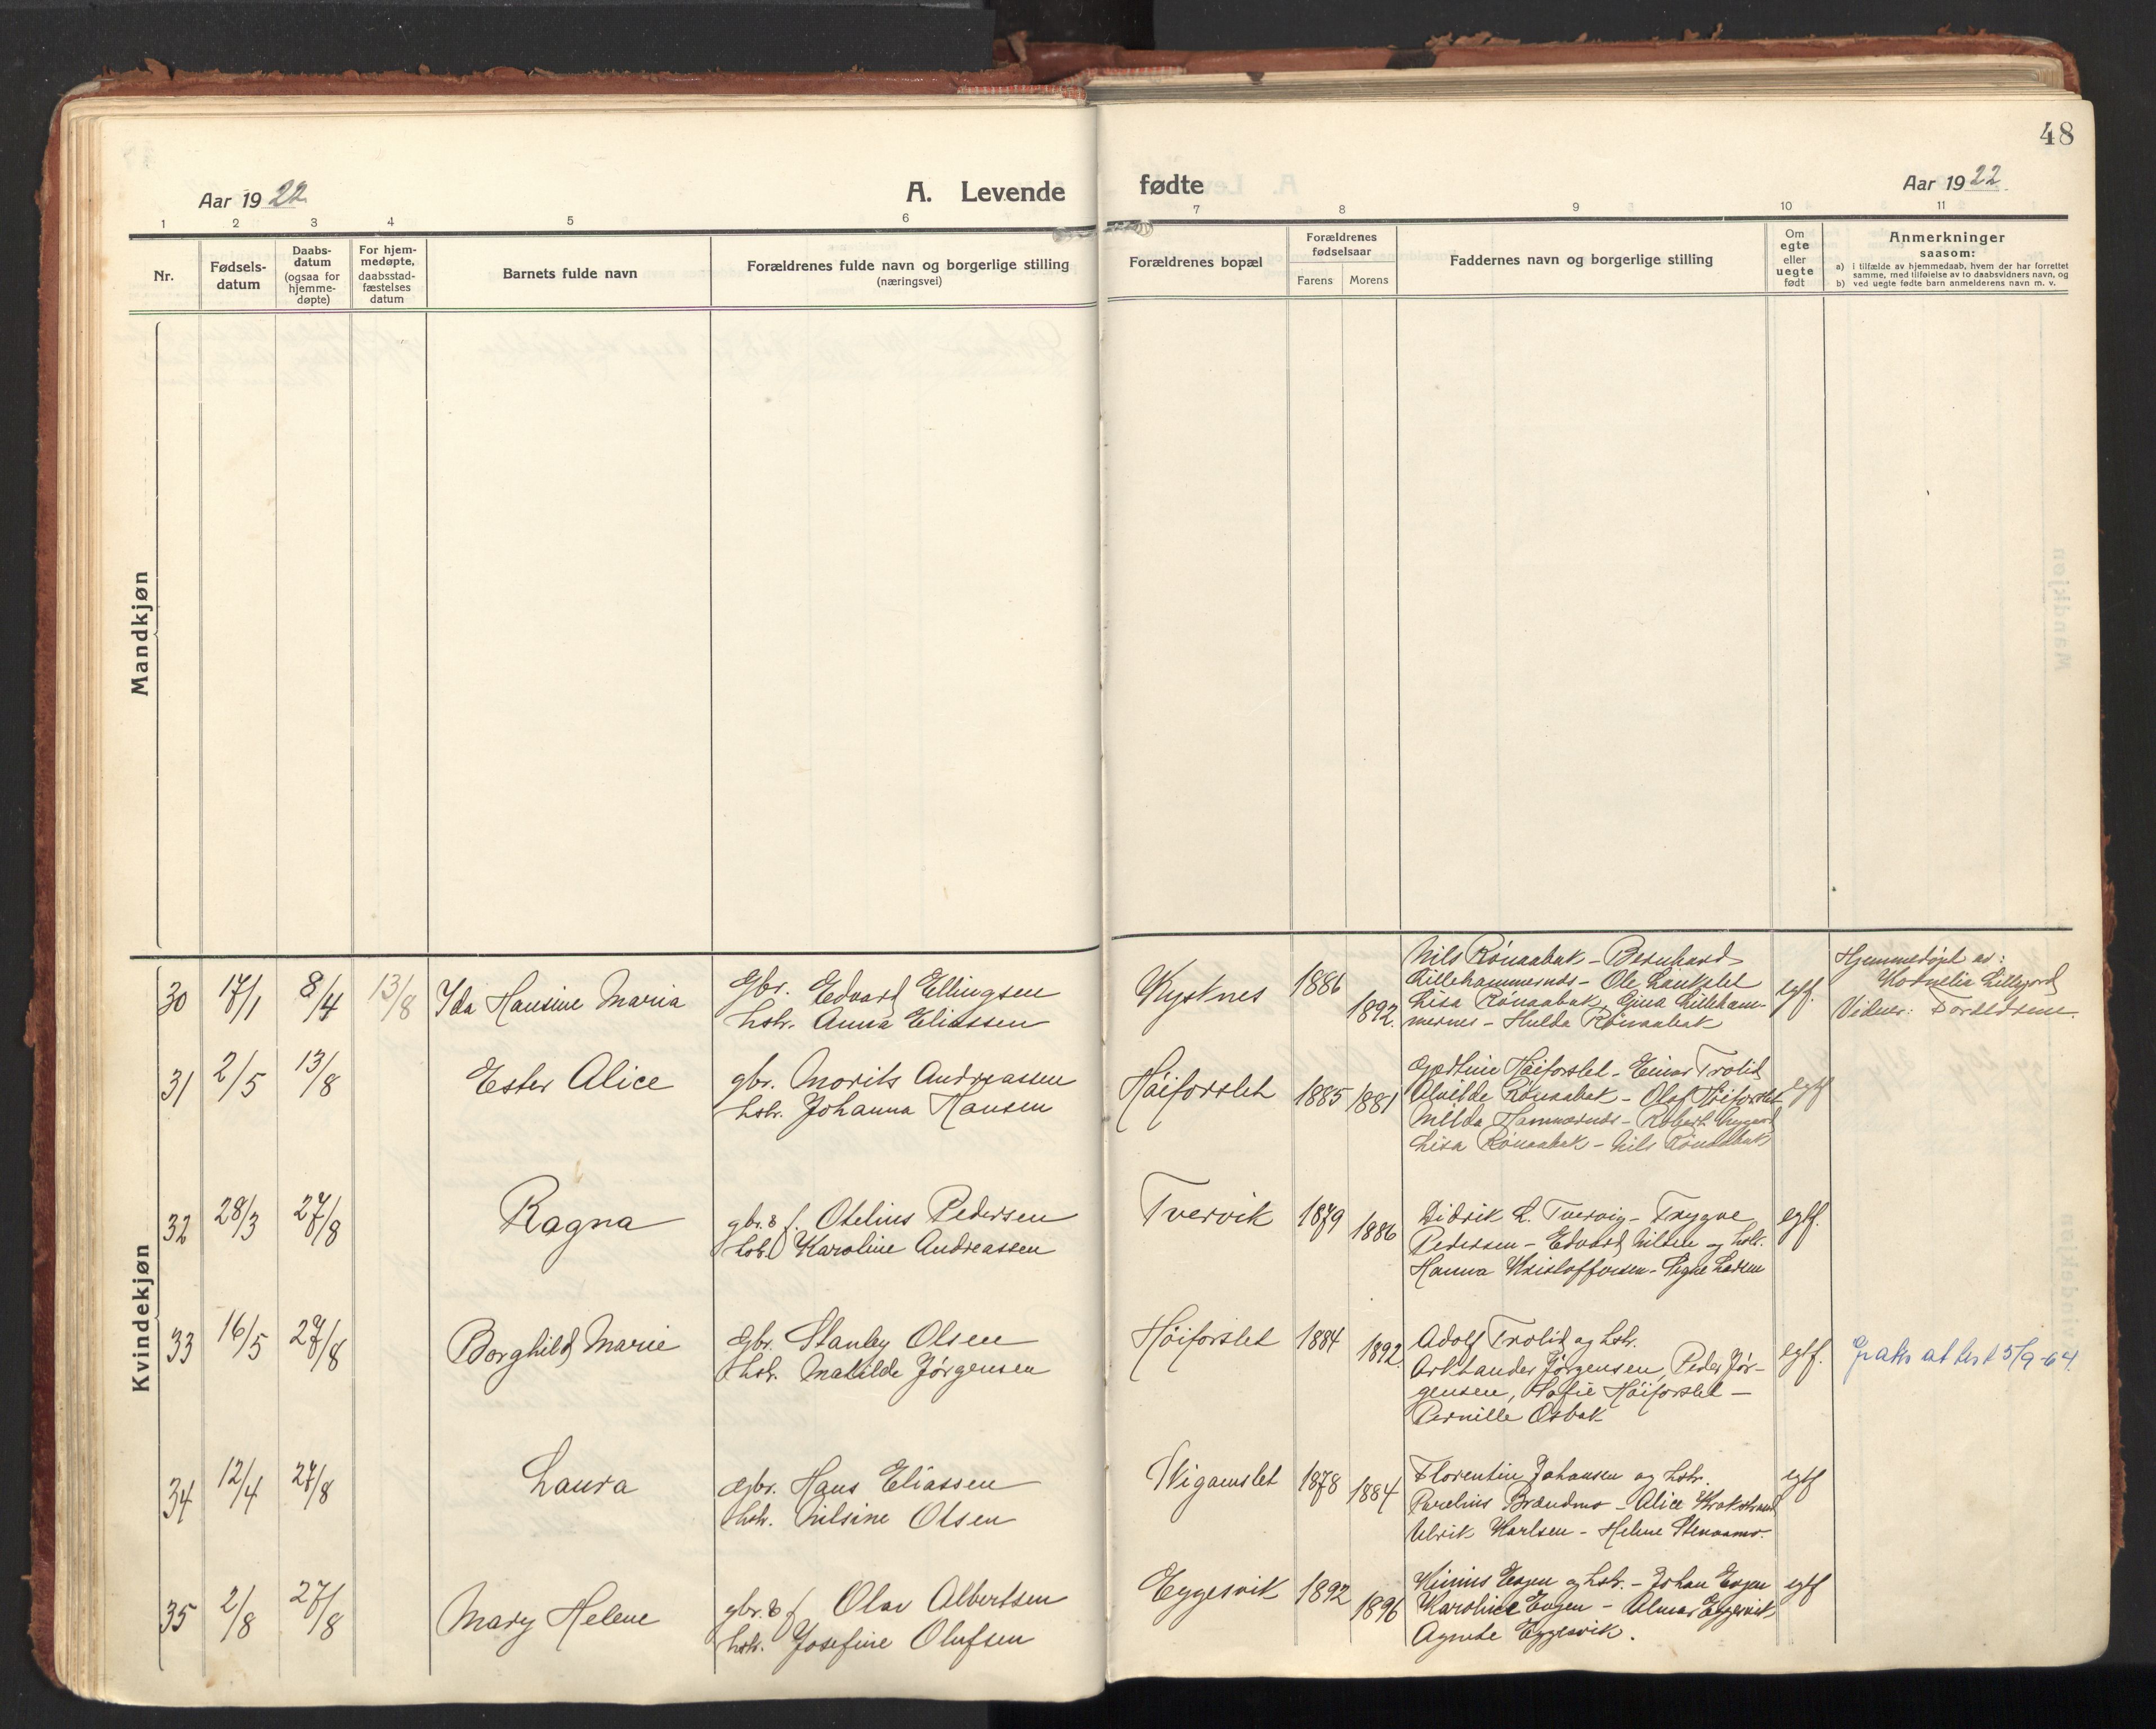 48
Aar 1922
A. Levende
fødte
Aar 1922
1 2 3 4 5 6 7 8 9 10 11
Nr.
Fødsels-
datum
Daabs-
datum
(ogsaa for
hjemme-
døpte)
For hjem-
medøpte,
daabsstad-
fæstelses
datum
Barnets fulde navn
Forældrenes fulde navn og borgerlige stilling
(næringsvei)
Forældrenes bopæl
Forældrenes
fødselsaar
Farens Morens
Faddernes navn og borgerlige stilling
Om
egte
eller
uegte
født
Anmerkninger
saasom:
a) i tilfælde av hjemmedaab, hvem der har forrettet
samme, med tilføielse av to daabsvidners navn, og
b) ved uegte fødte barn anmelderens navn m. v.
Mandkjøn
Kvindekjøn
30 17/1 8/4 13/8 Ida Hansine Maria
Gbr. Edvard Ellingsen
hstr. Anna Eliassen
1886
1892.
Nils Rønaabak - Bernhard
Lillehammernes - Ole
Lisa Rønaabak, Gina Lilleham-
mernes - Hulda Rønaabak
egtf.
Hjemmedøpt av:
Kornelia Lillegjord
Vidner: Forældrene.
31 2/5 13/8 Ester Alice
gbr. Morits Andreassen
hstr. Johanna Hansen
Høiforslet 1885 1881
Høiforslet - Einar Trolid
Alvilde Rønaabak - Olaf Høiforslet
Milda Hammernes - Robert
Lisa Rønaabak - Nils Rønaabak
egtf
32 28/3 27/8 Ragna
gbr. & f. Otelius Pedersen
hstr. Karoline Andreassen
Tvervik 1879 1886
Didrik L. Tvervig - Trygve
Pedersen - Edvard Nilsen og hstr.
Hanna Kristoffersen - Signe Larsen
egtf.
33 16/5 27/8 Borghild Marie
Gbr. Stanley Olsen
hstr. Matilde Jørgensen
Høiforslet 1884 1892.
Adolf Trolid og hstr.
Jørgensen, Peder Jør-
gensen, Sofie Høiforslet -
Pernille Osbak
egtf.
attest 5/9-64.
34 12/4 27/8 Laura
Gbr. Hans Eliassen
hstr. Nilsine Olsen
1878 1884
Florentin Johansen og hstr.
Brændmo - Alice Krokstrand
Ulrik Karlsen - Helene
egtf
35 2/8 27/8 Mary Helene
gbr. & f. Olav Albertsen
hstr. Josefine Olufsen
Eggesvik 1892 1896
Evjen og hstr. - Johan Evjen
Karoline Evjen - Almar Eggesvik
Agnete Eggesvik.
egtf